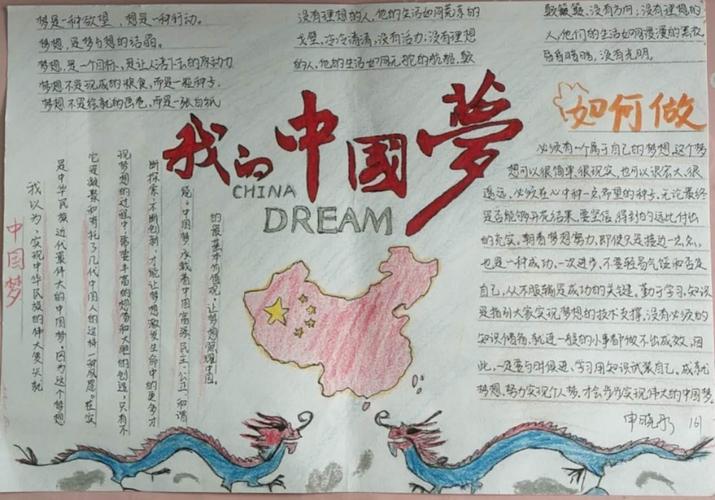 梦是一种欲望，想是一种行动。
梦想，是梦与想的结晶。
梦想，是一个目标，是让人活下去的原动力
梦想不是现成的粮食，而是一粒种子。
梦想不是绘就的画卷，而是一张白纸
没有理想的人，他的生活如同荒漠的
戈壁，冷冷清清，没有活力；没有理想
的人，他的生活如同无舵的航船，
没有方向；没有理想的
人，他们的生活如同漫漫的黑夜
没有光明。
我的中国夢
CHINA
DREAM
中国梦
我以为，实现中华民族的伟大复兴就
是中华民族近代最伟大的中国梦，因为这个梦想
它是凝聚和寄托了几代中国人的这样一种夙愿。在实
现梦想的过程中，需要丰富的想象和大胆的创造，只有不
断探索，不断创新，才能让梦想激发生命中的更多才
能。中国梦，承载着中国富强、民主、公正、和谐
的最基本的价值观，让梦想照耀中国。
如何做
必须有一个属于自己的梦想，这个梦
想可以很简单，很现实，也可以很宏大、很
遥远，必须在心中种一点希望的种子，无论最终
是否能够开花结果，要坚信，得到的远比付出
的充实。朝着梦想努力，即使只是接近一点点，
也是一种成功，一次进步，不要轻易气馁和否定
自己，从不服输是成功的关键，勤于学习，知识
是指引大家实现梦想的技术支撑，没有必须的
知识储备，就连一般的小事都做不出成效，因
此，一定要与时俱进，学习用知识武装自己。成就
梦想，努力实现个人梦，才会步步实现伟大的中国梦
申晓
161